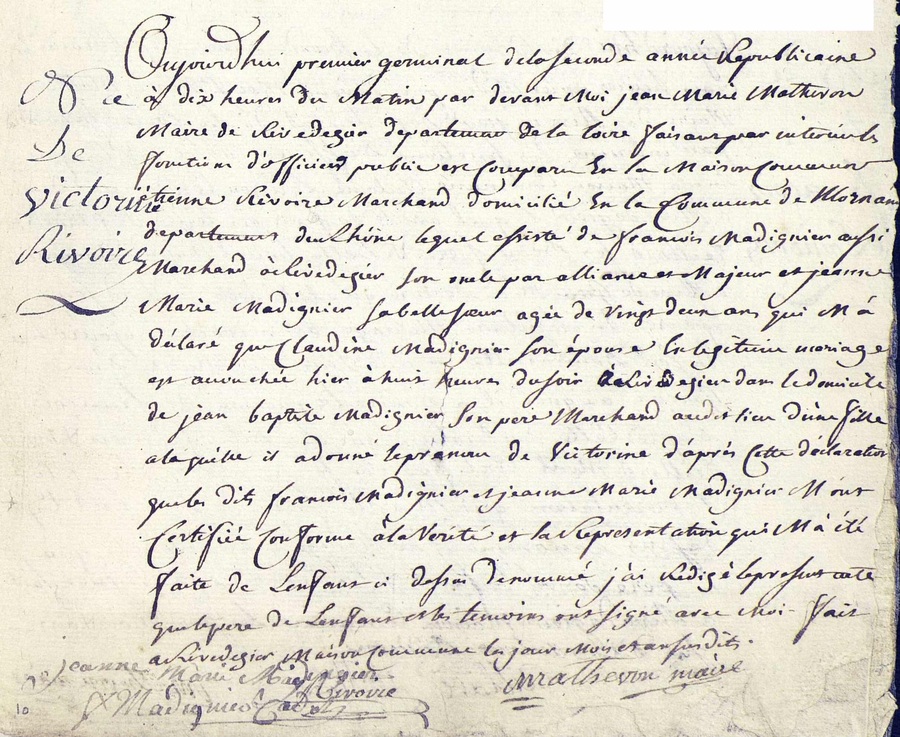 Née
De
victorine
Rivoire
Aujourd'hui premier germinal de la seconde année Republicaine
à dix heures du Matin par devant Moi jean Marie Mathevon
Maire de Rivedegier departement de la Loire faisant par interim les
fonctions d'officier public est Comparu En la Maison Commune
etienne Rivoire Marchand domicilié En la Commune de Mornan
departement du Rhône lequel assisté de francois Madignier aussi
Marchand à Rivedegier son oncle par alliance et Majeur et jeanne
Marie Madignier sa belle sœur agée de vingt deux ans qui M'a
déclaré que Claudine Madignier son épouse En legitime mariage
est accouchée hier à huit heures du soir à Rivedegier dans le domicile
de jean baptiste Madignier son pere Marchand audit lieu d'une fille
a laquelle il a donné le prenom de Victorine d'après Cette déclaration
que les dits francois Madignier et jeanne Marie Madignier M'ont
Certifiée Conforme à la Verité et la Representation qui M'a été
faite de Lenfant ci dessus denommé j'ai Redigé le present acte
que le pere de Lenfant et les temoins ont signé avec Moi fait
a Rivedegier Maison Commune les jour Mois et an susdits
Jeanne Marie Madignier
Rivoire
Mathevon maire
Madignier
10